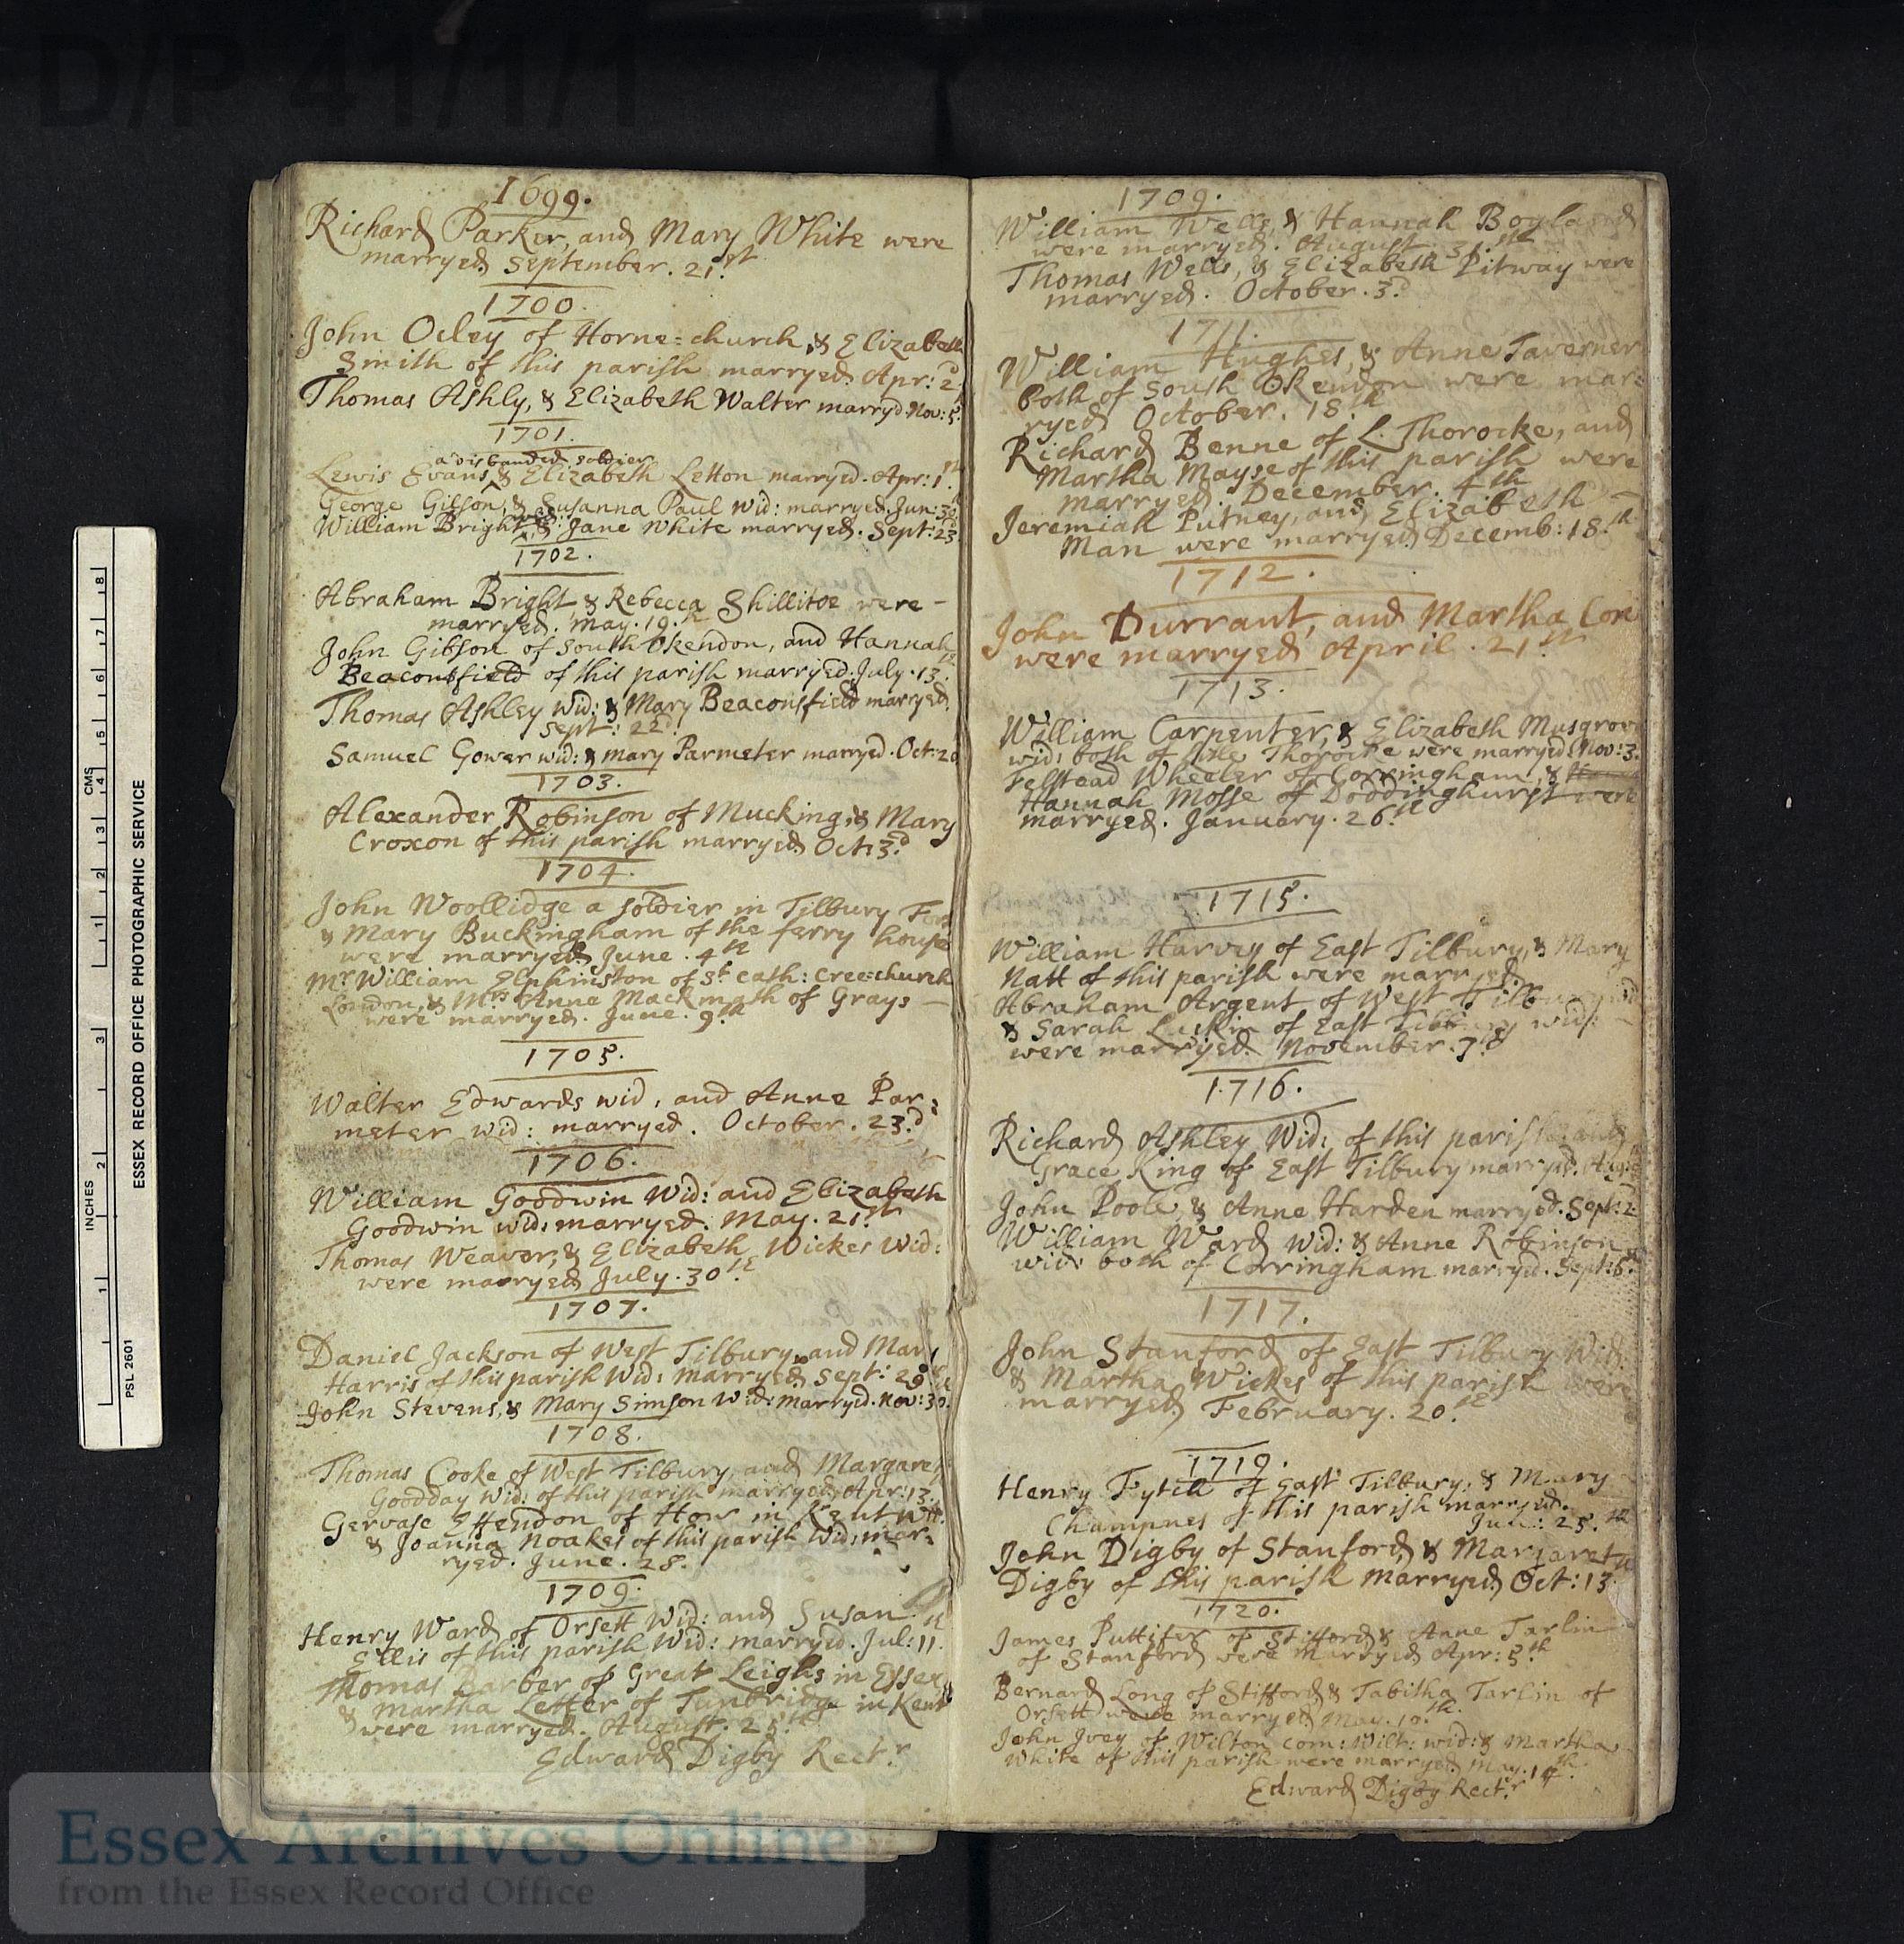 D/P 41/1/1
1699.
Richard Parker, and Mary White were
marryed September. 21st.
1700.
John Ocley of Horne=church, & Elizabeth
Smith of this parish marryed. Apr: 2d
Thomas Ashly, & Elizabeth Walter marryd Nov: 5
1701.
a disbanded soldier
Lewis Evans ^ & Elizabeth Letton marryed. Apr: 1st.
George Gibson, & Susanna Paul wid: marryed. Jun: 30
William Bright & Jane White marryed. Sept: 23
1702.
Abraham Bright & Rebecca Shillitoe were -
marryed. May. 19.th
John Gibson of South Okendon, and Hannah
Beaconsfield of this parish marryed. July. 13th.
Thomas Ashley wid: & Mary Beaconsfield marryed.
Sept: 22d.
Samuel Gower wid: & Mary Parmeter marryed. Oct: 20
1703.
Alexander Robinson of Mucking, & Mary
Croxon of this parish marryed Oct: 3.d
1704.
John Woollidge a soldier in Tilbury Fort
& Mary Buckingham of the ferry house
were marryed June. 4th
Mr. William Elphinston of St. Cath: Cree=church
London, & Mrs Anne Mackmash of Grays -
were marryed. June. 9.th
1705.
Walter Edwards wid, and Anne Par=
meter wid: marryed. October. 23.d
1706.
William Goodwin Wid: and Elizabeth
Goodwin wid: marryed. May. 21.st
Thomas Weaver, & Elizabeth Wickes Wid:
were marryed July. 30th.
1707.
Daniel Jackson of West Tilbury, and Mary
Harris of this parish Wid: marryed Sept: 29th
John Stevens, & Mary Simson Wid: marryed. Nov: 30.
1708.
Thomas Cooke of West Tilbury, and Margaret
Goodday Wid: of this parish marryed, Apr: 13.
Gervase Essendon of How in Kent Wid:
& Joanna Noakes of this parish Wid: mar=
ryed. June. 28.
1709.
Henry Ward of Orsett Wid: and Susan
Ellis of this parish Wid: marryed. Jul: 11.th
Thomas Barber of Great Leighs in Essex,
& Martha Letter of Tunbridge in Kent
were marryed. August. 25th.
Edward Digby Rect.r
1709.
William Wells, & Hannah Boyland
were marryed. August. 31.st
Thomas Wells, & Elizabeth Pitway were
marryed. October. 3.d
1711.
William Hughes, & Anne Taverner
both of South Okendon were mar=
ryed October. 18.th
Richard Benne of L. Thorocke, and
Martha Mayse of this parish were
marryed. December. 4th
Jeremiah Putney, and Elizabeth -
Man were marryed Decemb: 18.th
1712.
John Durrant, and Martha Con
were marryed April. 21.st
1713.
William Carpenter, & Elizabeth Musgrove
wid: both of little Thorocke were marryed Nov: 3.
Felstead Wheeler of Corringham, &
Hannah Mosse of Doddinghurst were
marryed. January. 26.th
1715.
William Harvey of East Tilbury, & Mary
Natt of this parish were marryed.
Abraham Argent of West Tilbury wid
& Sarah Luckin of East Tilbury wid: -
were marryed. November. 7.th
1716.
Richard Ashley Wid: of this parish and
Grace King of East Tilbury marryd. Aug:
John Poole, & Anne Harden marryed. Sept: 2
William Ward Wid: & Anne Robinson
wid: both of Corringham marryd. Sept: 6.th
1717.
John Stanford of East Tilbury Wid:
& Martha Wickes of this parish were
marryed February. 20.th
1719.
Henry Fytch of East Tilbury, & Mary
Champnes of this parish marryed.
25.th
John Digby of Stanford, & Margaret
Digby of this parish marryed Oct: 13th
1720.
James Puttifer of Stifford & Anne Tarlin
of Stanford were marryed Apr: 5th
Bernard Long of Stifford & Tabitha Tarlin of
Orsett were marryed May. 10.th.
John Ivey of Wilton com: Wilt: wid: & Martha
White of this parish were marryed May. 14th.
Edward Digby Rect.r
INCHES 1 2 3 CMS 1 2 3 4 5 6 7 8
PSL 2601 ESSEX RECORD OFFICE PHOTOGRAPHIC SERVICE
Essex Archives Online
from the Essex Record Office